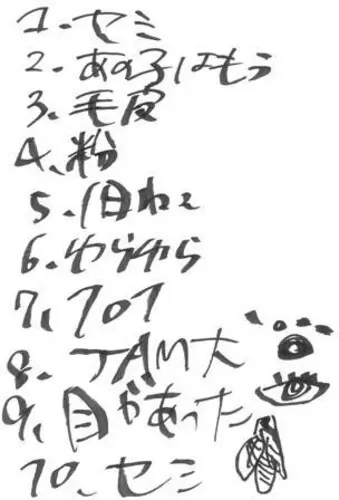 1. セミ
2. あの子はもう
3. 毛皮
4. 粉
5.
6. ゆらゆら
7.
8. JAM大
9. 目があった
10. セミ